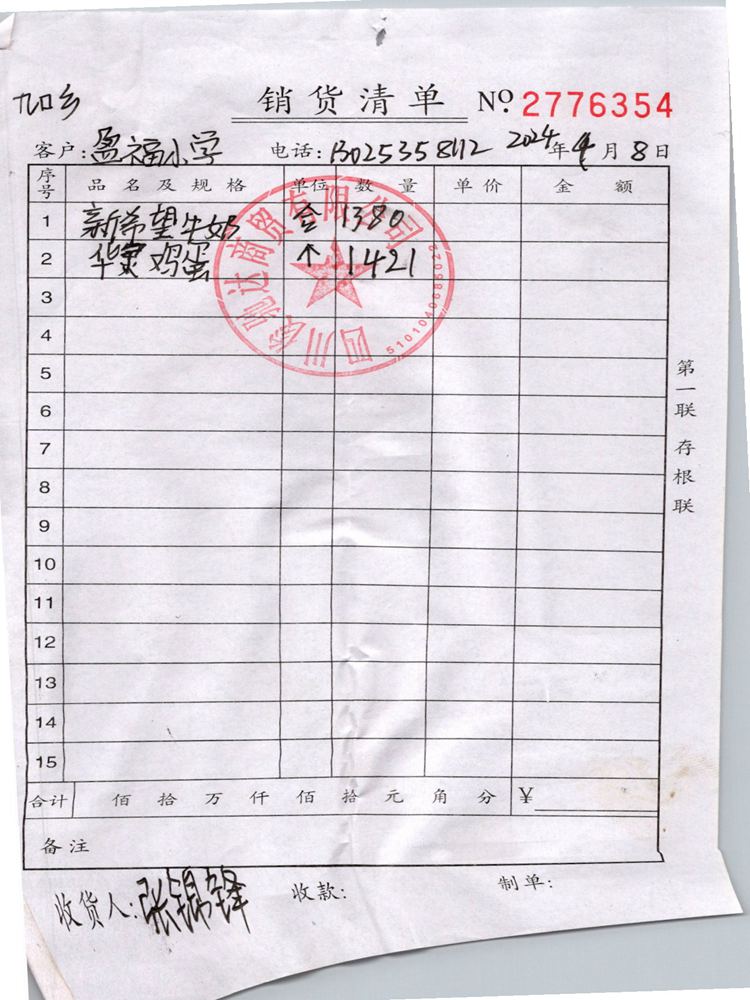 九口乡
销货清单 № 2776354
客户：盈福小学 电话：13025358112 2024年4月8日
序号 品名及规格 单位 数量 单价 金额
1 新希望牛奶 合 1380
2 华 鸡蛋 个 1421
3
4
5
6
7
8
9
10
11
12
13
14
15
合计 佰 拾 万 仟 佰 拾 元 角 分 ¥
备注
收货人：张锡锋 收款： 制单：
第一联 存根联
驰达商贸有限公司